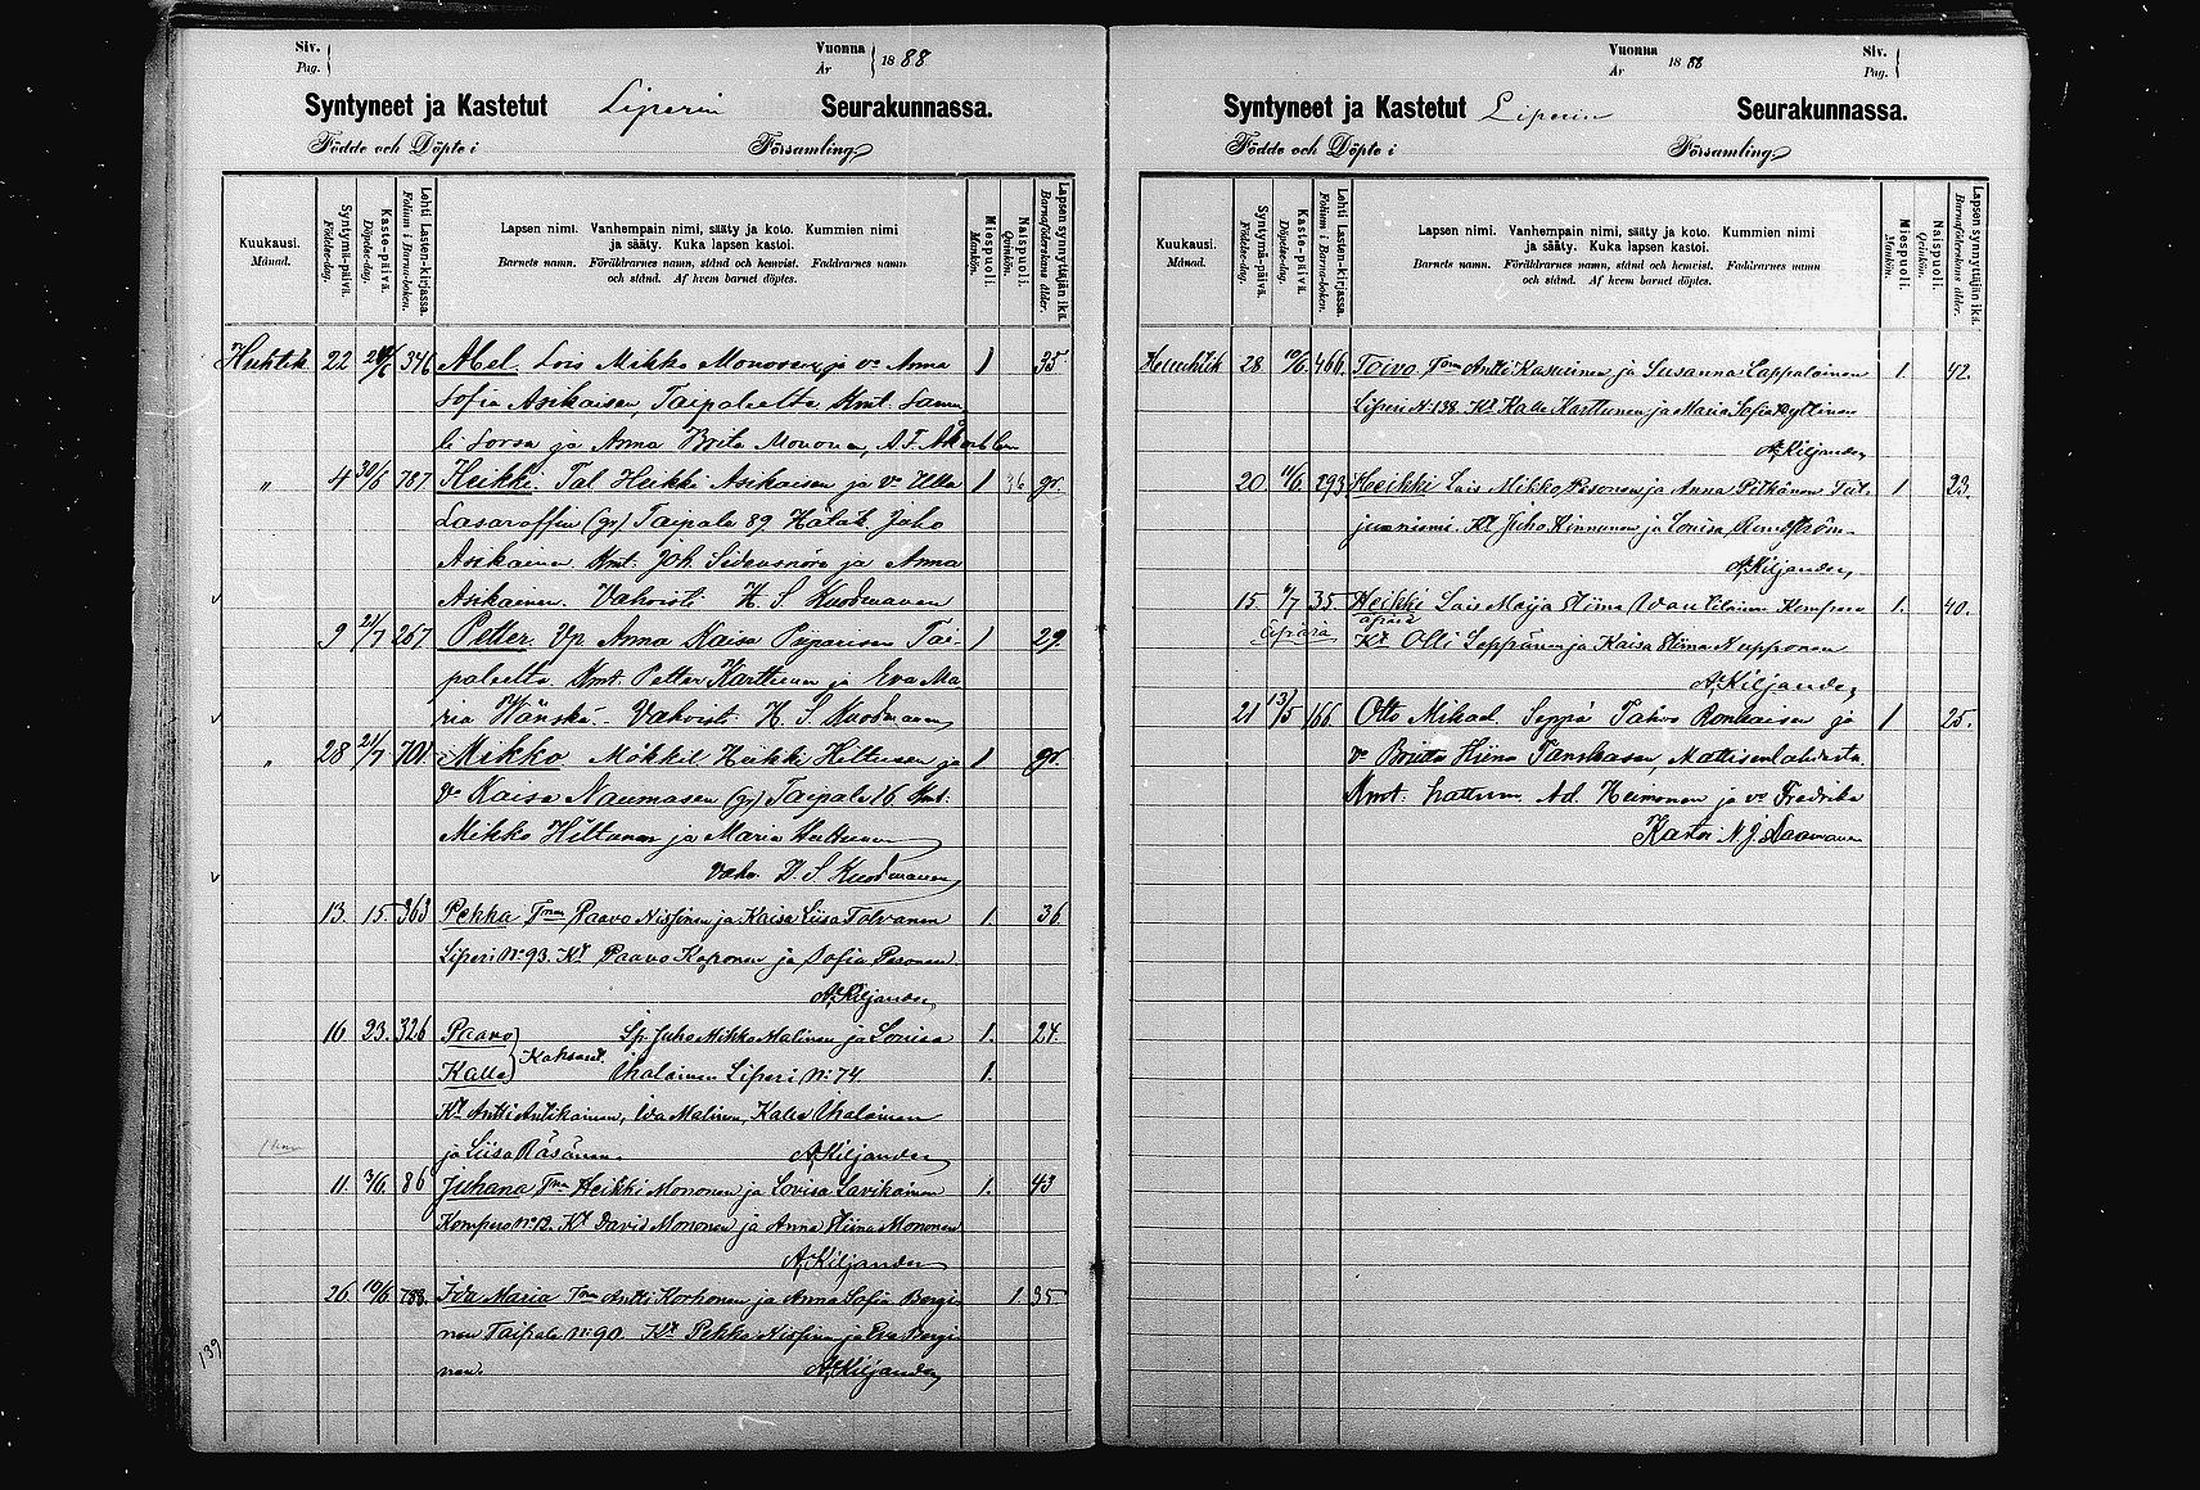 Siv. Pag.
Vuonna År 1888
Syntyneet ja Kastetut Liperin Seurakunnassa.
Födde och Döpte i Församling.
Kuukausi. Månad.
Syntymä-päivä. Födelse-dag.
Kaste-päivä. Döpelse-dag.
Lehti Lasten-kirjassa. Folium i Barna-boken.
Lapsen nimi. Vanhempain nimi, sääty ja koto. Kummien nimi
ja sääty. Kuka lapsen kastoi.
Barnets namn. Föräldrarnes namn, stånd och hemvist. Faddrarnes namn
och stånd. Af hvem barnet döptes.
Miespuoli. Mankön.
Naispuoli. Qvinkön.
Lapsen synnyttäjän ikä. Barnaföderskans ålder.
Huhtik. 22 346 Abel. Lois Mikko Monosen ja vo Anna 1 35
Sofia Asikaisen, Taipaleelta. Kmt. Samu
li Sorsa ja Anna Brita Mononen, A. F.
" 4 30/6 787 Heikki. Tal. Heikki Asikaisen ja vo Ulla 1 36 gr.
Lasaroffin (gr) Taipale 89. Hätäk. Juho
Asikainen. Kmt: Joh. Sidensnöre ja Anna
Asikainen. Vahvisti H. S. Kuosmanen
9 21/7 267 Petter. Vp. Anna Kaisa Piiparisen Tai- 1 29.
paleelta. Kmt. Petter Karttunen ja Eva Ma
ria Wänskä. Vahvisti H. S. Kuosmanen
" 28 21/7 701 Mikko. Mökkil. Heikki Hiltusen ja 1. gr.
vo Kaisa Naumasen (gr) Taipale 16. Kmt:
Mikko Hiltunen ja Maria Hiltunen
Vahv. H. S. Kuosmanen
13. 15. 363 Pekka Tmn Paavo Nissinen ja Kaisa Liisa Tolvanen 1. 36
Liperi No 93. Kt Paavo Kaponen ja Sofia Pesonen
A. Kiljander
16. 23. 326 Paavo Lp. Juho Mikko Malinen ja Lovisa 1. 24.
Kalle Kaksoset. Ihalainen Liperi No 74. 1.
Kt Antti Antikainen, Ida Malinen, Kalle Ihalainen
ja Liisa Räsänen. A. Kiljander
11. 3/6. 86 Juhana Tmn Heikki Mononen ja Lovisa Lavikainen 1. 43
Kompero No 12. Kt David Mononen ja Anna Stiina Mononen
A. Kiljander
26 10/6 788. Ida Maria Tmn Antti Korhonen ja Anna Sofia Bergi- 1. 35.
nen Taipale No 90. Kt Pekka Nissinen ja Eva Bergi
nen. A. Kiljander
139
Vuonna År 1888
Siv. Pag.
Syntyneet ja Kastetut Liperin Seurakunnassa.
Födde och Döpte i Församling.
Kuukausi. Månad.
Syntymä-päivä. Födelse-dag.
Kaste-päivä. Döpelse-dag.
Lehti Lasten-kirjassa. Folium i Barna-boken.
Lapsen nimi. Vanhempain nimi, sääty ja koto. Kummien nimi
ja sääty. Kuka lapsen kastoi.
Barnets namn. Föräldrarnes namn, stånd och hemvist. Faddrarnes namn
och stånd. Af hvem barnet döptes.
Miespuoli. Mankön.
Naispuoli. Qvinkön.
Lapsen synnyttäjän ikä. Barnaföderskans ålder.
28 10/6. 466. Toivo. Tmn Antti Kasurinen ja Susanna Lappalainen 1. 42.
Liperi No 138. Kt Kalle Karttunen ja Maria Sofia Ryttinen
A. Kiljander
20. 11/6. 293 Heikki Lois Mikko Pesonen ja Anna Pitkänen Tut- 1 23.
junniemi. Kt Juho Kinnunen ja Lovisa Rundström
A. Kiljander
15. 1/7 35. Heikki Lois Maija Stiina Kompero 1. 40.
äpärä äpärä
Kt Olli Seppänen ja Kaisa Stiina Nupponen
A. Kiljander
21 13/5 166. Otto Mikael. Seppä Tahvo Ronkaisen ja 1 25.
vo Britta Stiina Tanskasen, Mattisenlahdesta.
Kmt: Ad. Heimonen ja vo Fredrika
Kastoi N. J. Naamanen